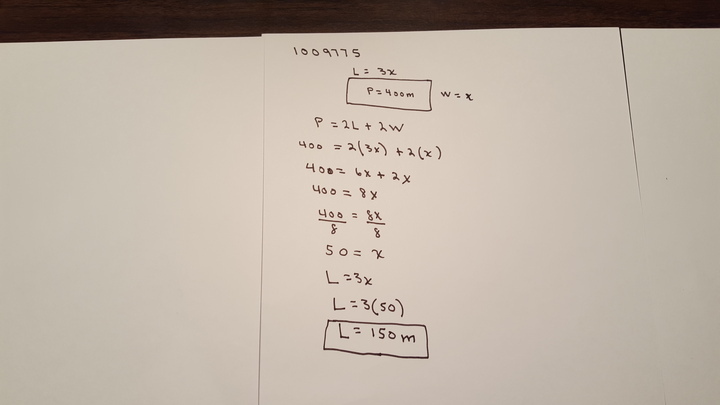 1009775
L = 3x
P = 400m W = x
P = 2L + 2W
400 = 2(3x) + 2(x)
400 = 6x + 2x
400 = 8x
400/8 = 8x/8
50 = x
L = 3x
L = 3(50)
L = 150m